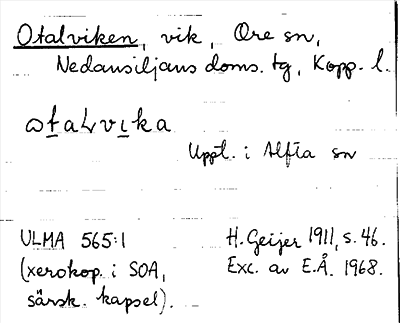 Otalviken, vik, Ore sn,
Nedansiljans doms. tg, Kopp. l.
ωtaLvıka
Uppt. i Alfta sn
ULMA 565:1
(xerokop. i SOA,
särsk. kapsel).
H. Geijer 1911, s. 46.
Exc. av E.Å. 1968.